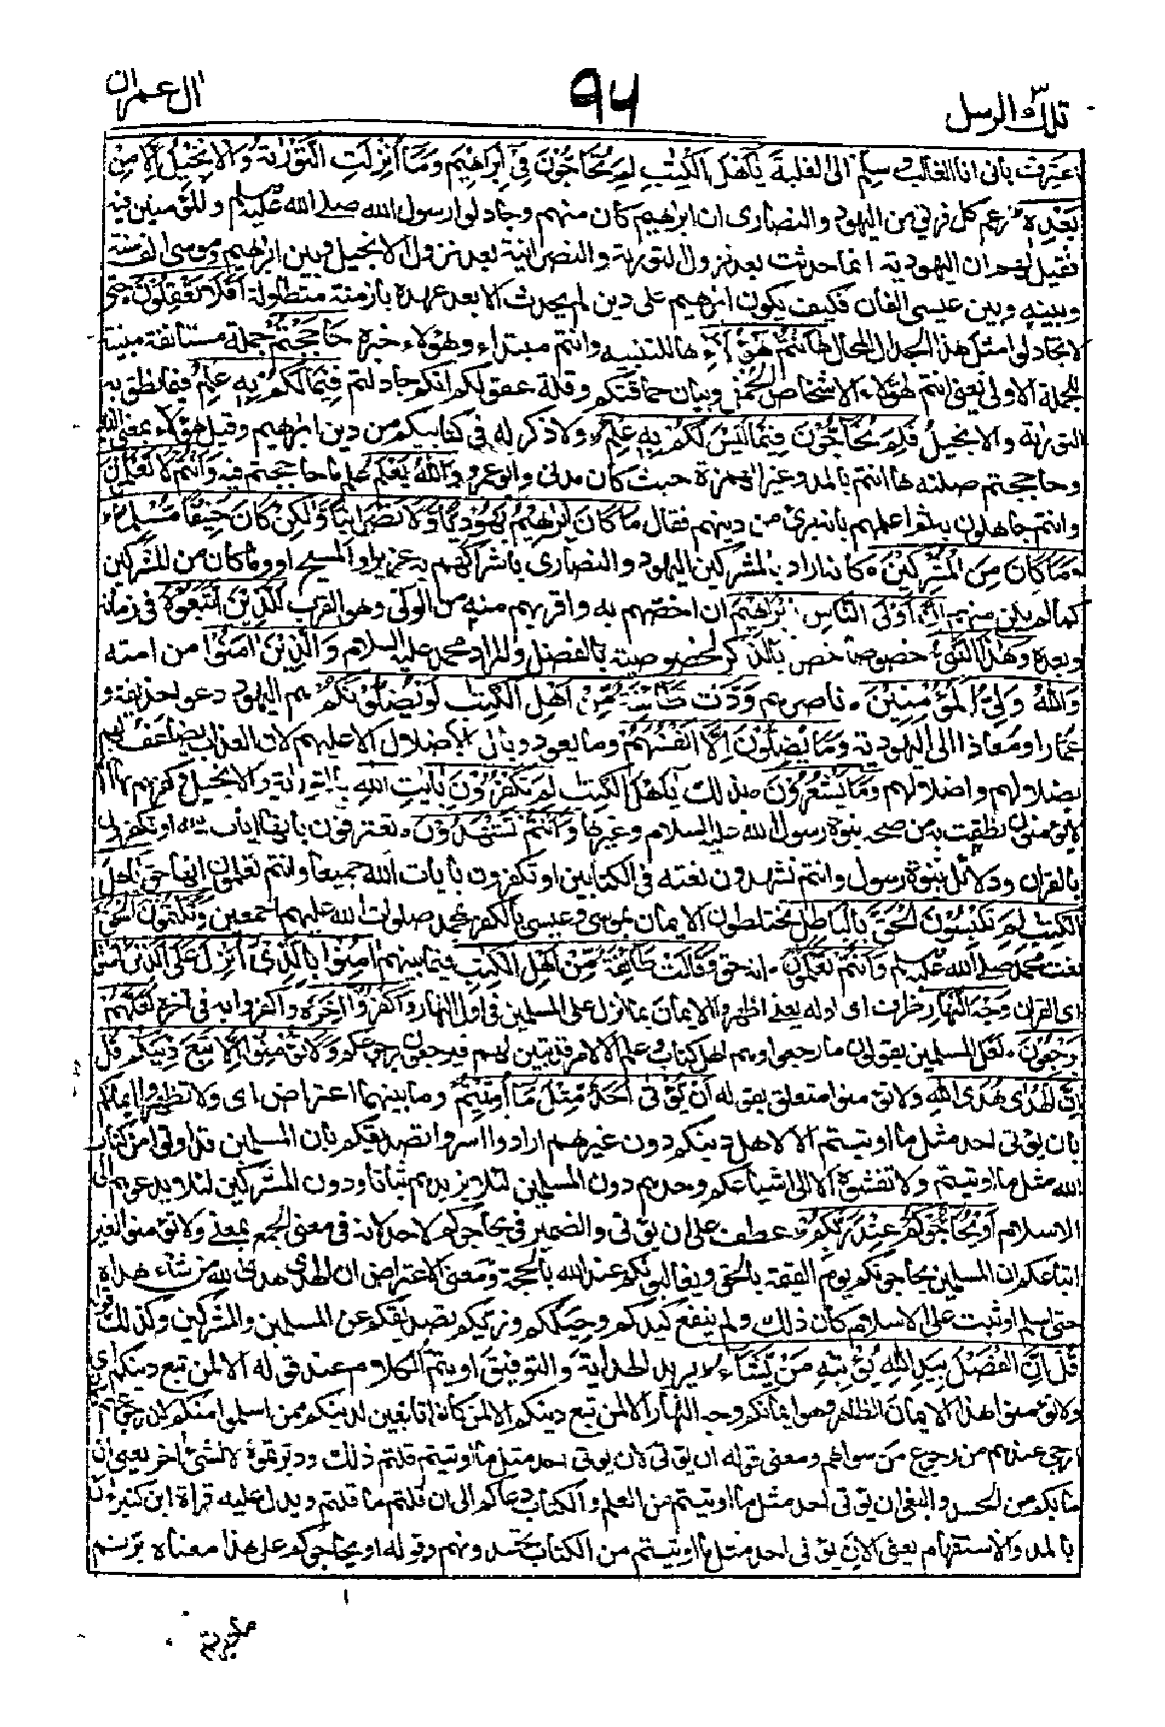 تلك الرسل ٣
٩٤
ال عمران
اعترفت بأنى انا الغالب وسلم الى الغلبة يٰاهل الكتٰب لم تحاجون فى ابراهيم وما انزلت التورٰىة والانجيل الا من
بعده زعم كل فريق من اليهود والنصارى ان ابراهيم كان منهم وجادلوا رسول الله صلى الله عليه وسلم والمؤمنين فيه
فقيل لهم ان اليهودية انما حدثت بعد نزول التورٰىة والنصرانية بعد نزول الانجيل وبين ابراهيم وموسى الف سنة
وبينه وبين عيسى الفان فكيف يكون ابراهيم على دين لم يحدث الا بعد عهده بازمنة متطاولة افلا تعقلون حتى
لا تجادلوا مثل هذا الجدال المحال هاانتم هؤلاء ها للتنبيه وانتم مبتداء وهؤلاء خبره حاججتم جملة مستانفة مبينة
للجملة الاولى يعنى انتم هؤلاء الاشخاص الحمقى وبيان حماقتكم وقلة عقولكم انكم جادلتم فيما لكم به علم مما نطق به
التورٰىة والانجيل فلم تحاجون فيما ليس لكم به علم ولا ذكر له فى كتابيكم من دين ابراهيم وقيل هؤلاء بمعنى الذين
وحاججتم صلته هاانتم بالمد وغير الهمزة حيث كان مدنى وابو عمرو والله يعلم علم ما حاججتم فيه وانتم لا تعلمون
وانتم جاهلون به ثم اعلمهم بانه برئ من دينهم فقال ما كان ابراهيم يهوديا ولا نصرانيا ولكن كان حنيفا مسلما
وما كان من المشركين كانه اراد بالمشركين اليهود والنصارى باشراكهم به عزيرا والمسيح او وما كان من المشركين
كما لم يكن منهم ان اولى الناس بابراهيم ان اخصهم به واقربهم منه من الولى وهو القرب للذين اتبعوه فى زمانه
وبعده وهذا النبى خصوصا خص بالذكر لخصوصيته بالفضل والمراد محمد عليه السلام والذين اٰمنوا من امته
والله ولى المؤمنين ناصرهم ودت طائفة من اهل الكتٰب لو يضلونكم هم اليهود دعوا حذيفة و
عمارا ومعاذا الى اليهودية وما يضلون الا انفسهم وما يعود وبال الاضلال الا عليهم لان العذاب يضاعف لهم
بضلالهم واضلالهم وما يشعرون بذلك يٰاهل الكتٰب لم تكفرون باٰيٰت الله بالتورٰىة والانجيل وكفرهم بها انهم
لا يؤمنون بما نطقت به من صحة نبوة رسول الله عليه السلام وغيرها وانتم تشهدون تعترفون بانها اٰيات الله او تكفرون
بالقراٰن ودلائل نبوة الرسول وانتم تشهدون نعته فى الكتابين او تكفرون باٰيات الله جميعا وانتم تعلمون انها حق يٰاهل
الكتٰب لم تلبسون الحق بالباطل تخلطون الايمان بموسى وعيسى بالكفر بمحمد صلوات الله عليهم اجمعين وتكتمون الحق
نعت محمد صلى الله عليه وسلم وانتم تعلمون انه حق وقالت طائفة من اهل الكتٰب فيما بينهم اٰمنوا بالذى انزل على الذين اٰمنوا
اى القراٰن وجه النهار ظرف اى اوله يعنى اظهروا الايمان بما انزل على المسلمين فى اول النهار واكفروا اٰخره واكفروا به فى اٰخره لعلهم
يرجعون لعل المسلمين يقولون ما رجعوا وهم اهل كتاب وعلم الا لامر قد تبين لهم فيرجعون برجوعكم ولا تؤمنوا الا لمن تبع دينكم قل
ان الهدى هدى الله ولا تؤمنوا متعلق بقوله ان يؤتى احد مثل ما اوتيتم وما بينهما اعتراض اى ولا تظهروا ايمانكم
بان يؤتى احد مثل ما اوتيتم الا لاهل دينكم دون غيرهم ارادوا اسروا تصديقكم بان المسلمين قد اوتوا من كتاب
الله مثل ما اوتيتم ولا تفشوه الا الى اشياعكم وحدهم دون المسلمين لئلا يزيدهم ثباتا ودون المشركين لئلا يدعوهم الى
الاسلام او يحاجوكم عند ربكم عطف على ان يؤتى والضمير فى يحاجوكم لاحد لانه فى معنى الجمع بمعنى ولا تؤمنوا لغير
اتباعكم ان المسلمين يحاجونكم يوم القيمة بالحق ويغالبونكم عند الله بالحجة ومعنى الاعتراض ان الهدى هدى الله من شاء هداه
حتى اسلم او ثبت على الاسلام كان ذلك ولم ينفع كيدكم وحيلكم وزيكم تصديقكم عن المسلمين والمشركين وكذلك
قل ان الفضل بيد الله يؤتيه من يشاء يريد الهداية والتوفيق او يتم الكلام عند قوله الا لمن تبع دينكم اى
ولا تؤمنوا هذا الايمان الظاهر وهو ايمانكم وجه النهار الا لمن تبع دينكم الا لمن كانوا تابعين لدينكم ممن اسلموا منكم لان رجوعهم
ارجى عندهم من رجوع من سواهم ومعنى قوله ان يؤتى لان يؤتى احد مثل ما اوتيتم قلتم ذلك ودبرتموه لا لشئ اٰخر يعنى ان
ما بكم من الحسد والبغى ان يؤتى احد مثل ما اوتيتم من العلم والكتاب دعاكم الى ان قلتم ما قلتم ويدل عليه قراءة ابن كثير ءان
بالمد والاستفهام يعنى الان يؤتى احد مثل ما اوتيتم من الكتاب تحسدونهم وقوله او يحاجوكم على هذا معناه دبرتم